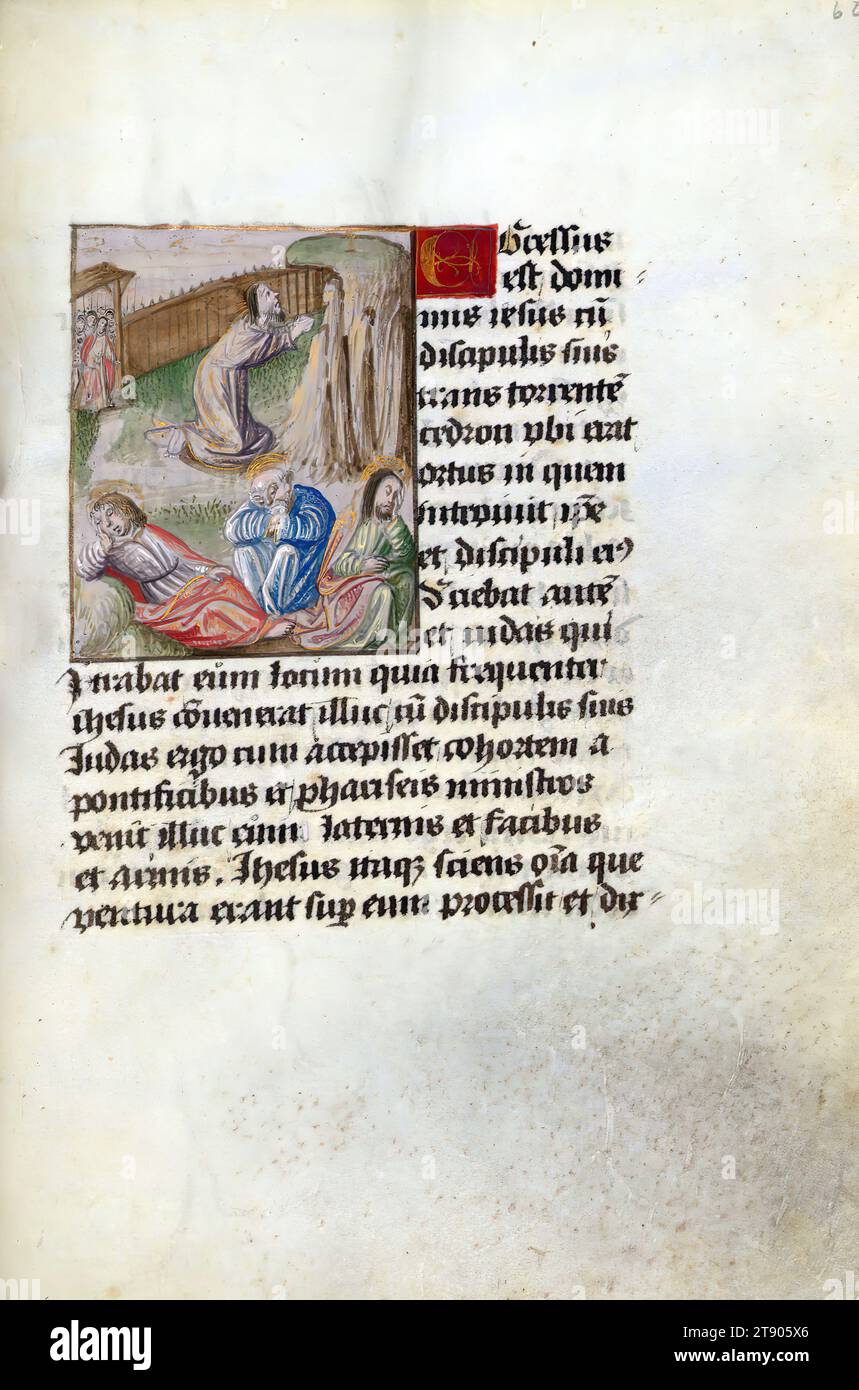 Egressus
est domi=
nus iesus cū
discipulis suis
trans torrentē
cedron vbi erat
ortus in quem
introiuit ipse
et discipuli eiꝰ
Sciebat autē
et iudas qui
trabat eum locum quia frequenter
ihesus cōuenerat illuc cū discipulis suis
Iudas ergo cum accepisset cohortem a
pontificibus et phariseis ministros
venit illuc cum laternis et facibus
et armis. Ihesus itaqȝ sciens oīa que
ventura erant sup eum processit et dix=
alamy
Image ID: 2T905X6
www.alamy.com